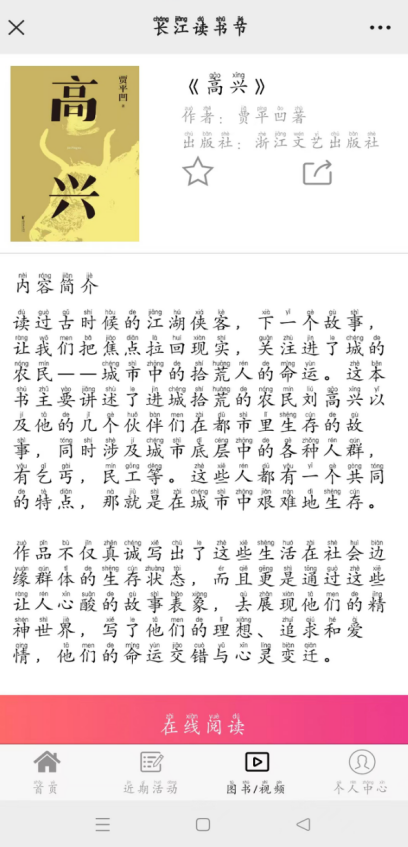 长江读书节
高兴
贾平凹
《高兴》
作者：贾平凹著
出版社：浙江文艺出版社
内容简介
读过古时候的江湖侠客，下一个故事，
让我们把焦点拉回现实，关注进了城的
农民——城市中的拾荒人的命运。这本
书主要讲述了进城拾荒的农民刘高兴以
及他的几个伙伴们在都市里生存的故
事，同时涉及城市底层中的各种人群，
有乞丐，民工等。这些人都有一个共同
的特点，那就是在城市中艰难地生存。
作品不仅真诚写出了这些生活在社会边
缘群体的生存状态，而且更是通过这些
让人心酸的故事表象，去展现他们的精
神世界，写了他们的理想、追求和爱
情，他们的命运交错与心灵变迁。
在线阅读
首页
近期活动
图书/视频
个人中心